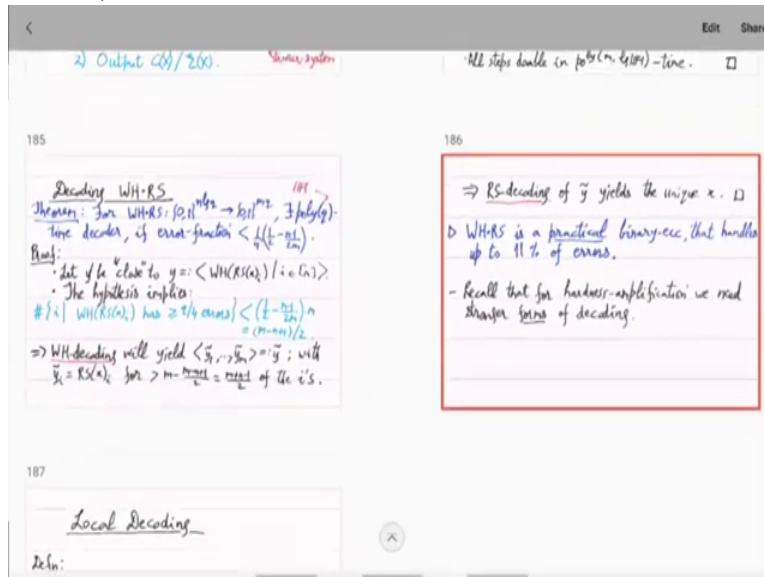 Edit Share
2) Output C(x)/E(x).
All steps doable in poly(m, lg|F|)-time. □
185
Decoding WH·RS
|F|
Theorem: For WH·RS: {0,1}^{n lg q} → {0,1}^{mq}, ∃ poly(q)-
time decoder, if error-fraction < 1/4(1/2 - (n-1)/2m).
Proof:
• Let y be "close" to y =: <WH(RS(x)_i) | i ∈ [m]>.
• The hypothesis implies:
#{i | WH(RS(x)_i) has ≥ q/4 errors} < (1/2 - (n-1)/2m)·m
= (m-n+1)/2.
⇒ WH-decoding will yield <ỹ_1,..,ỹ_m> =: ỹ; with
ỹ_i = RS(x)_i for > m - (m-n+1)/2 = (m+n-1)/2 of the i's.
186
⇒ RS-decoding of ỹ yields the unique x. □
▷ WH·RS is a practical binary-ecc, that handles
up to 11% of errors.
- Recall that for hardness-amplification we need
stronger forms of decoding.
187
Local Decoding
Defn: